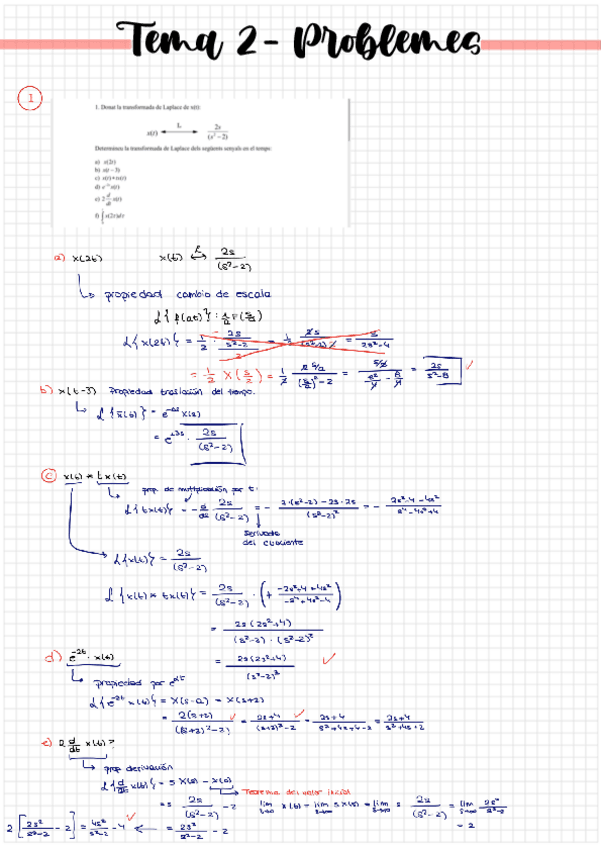 Tema 2 - Problemes
1
1. Donat la transformada de Laplace de x(t):
x(t) ⟷ L 2s/(s²-2)
Determineu la transformada de Laplace dels següents senyals en el temps:
a) x(2t)
b) x(t-3)
c) x(t)*tx(t)
d) e^-2t x(t)
e) 2 d/dt x(t)
f) ∫ x(2τ)dτ
a) x(2t) x(t) ⟷ L 2s/(s²-2)
propiedad cambio de escala
L{f(at)} = 1/a F(s/a)
L{x(2t)} = 1/2
= 1/2 X(s/2) = = 2s/(s²-8)
b) x(t-3) propiedad traslación del tiempo.
= 2s/(s²-2)
c) x(t) * t x(t)
prop. de multiplicación por t:
L{tx(t)} = -d/ds 2s/(s²-2) = - 2·(s²-2)-2s·2s/(s²-2)² = -
derivada
del cociente
L{x(t)} = 2s/(s²-2)
L{x(t) * tx(t)} = 2s/(s²-2) ·
= 2s(2s²+4)/(s²-2)·(s²-2)²
= 2s(2s²+4)/(s²-2)³
d) e^-2t · x(t)
propiedad por
L{e^-2t x(t)} = X(s-a) = X(s+2)
= 2(s+2)/((s+2)²-2) = 2s+4/((s+2)²-2) = 2s+4/(s²+4s+4-2) = 2s+4/(s²+4s+2)
e) 2 d/dt x(t)?
prop derivación
L{d/dt x(t)} = s X(s) - x(0)
Teorema del valor inicial
= s 2s/(s²-2) - 2 lim x(t) = lim s X(s) = lim s 2s/(s²-2) = lim 2s²/(s²-2)
= 2
2 [2s²/(s²-2) - 2] = 4s²/(s²-2) - 4 ⟵ = 2s²/(s²-2) - 2